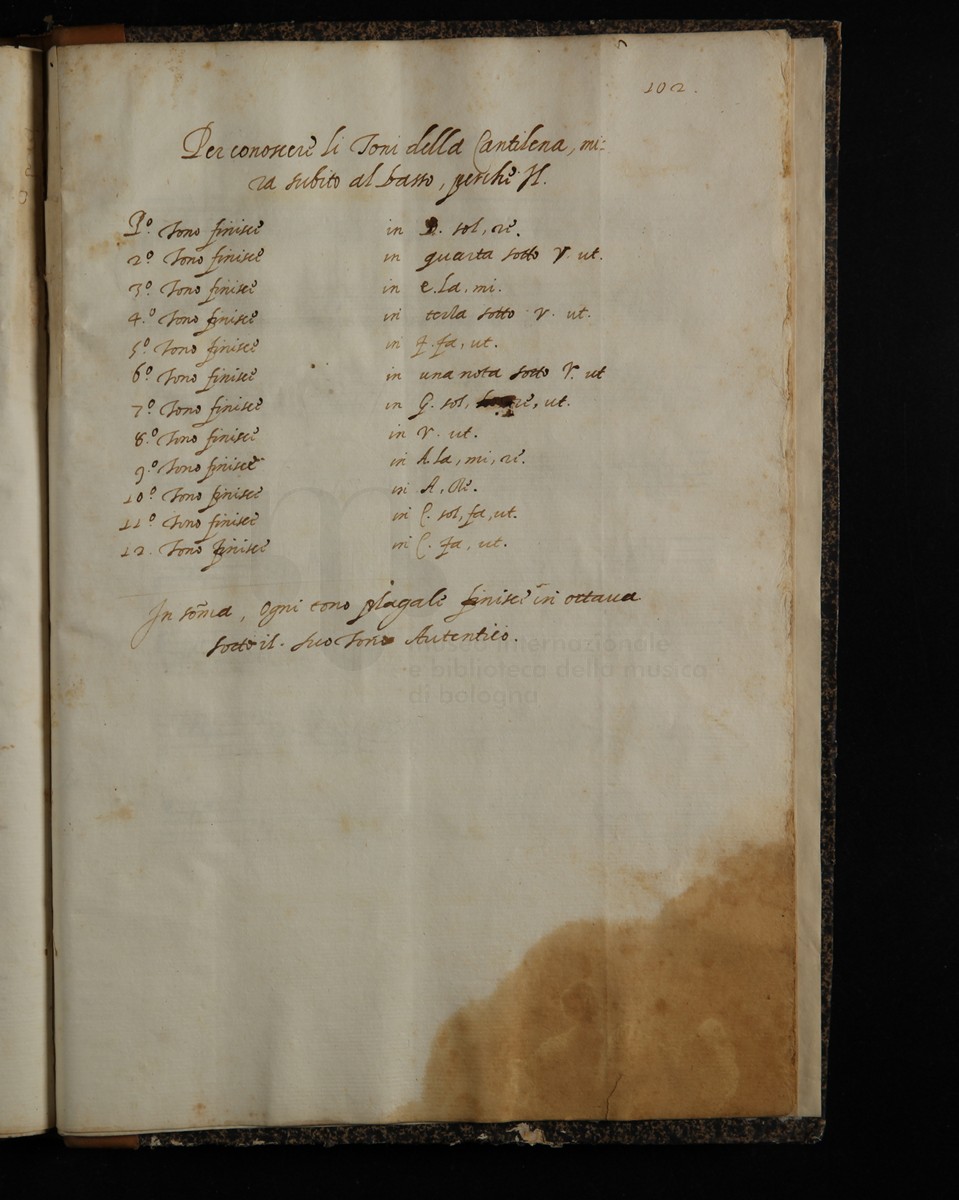 102.
Per conoscere li Toni della Cantilena, mi:
ra subito al basso, perche Il.
P.º Tono finisce in D. sol, re.
2º Tono finisce in quarta sotto Γ. ut.
3º Tono finisce in e. la, mi.
4.º Tono finisce in terza sotto Γ. ut.
5º Tono finisce in f. fa, ut.
6º Tono finisce in una nota sotto Γ. ut
7º Tono finisce in G. sol, re, ut.
8.º Tono finisce in Γ. ut.
9.º Tono finisce in A. la, mi, re.
10º Tono finisce in A, Re.
11º Tono finisce in C. sol, fa, ut.
12. Tono finisce in C. fa, ut.
In som̃a, Ogni tono plagale finisce in octava
sotto il suo Tono Autentico.
museo internazionale
e biblioteca della musica
di bologna